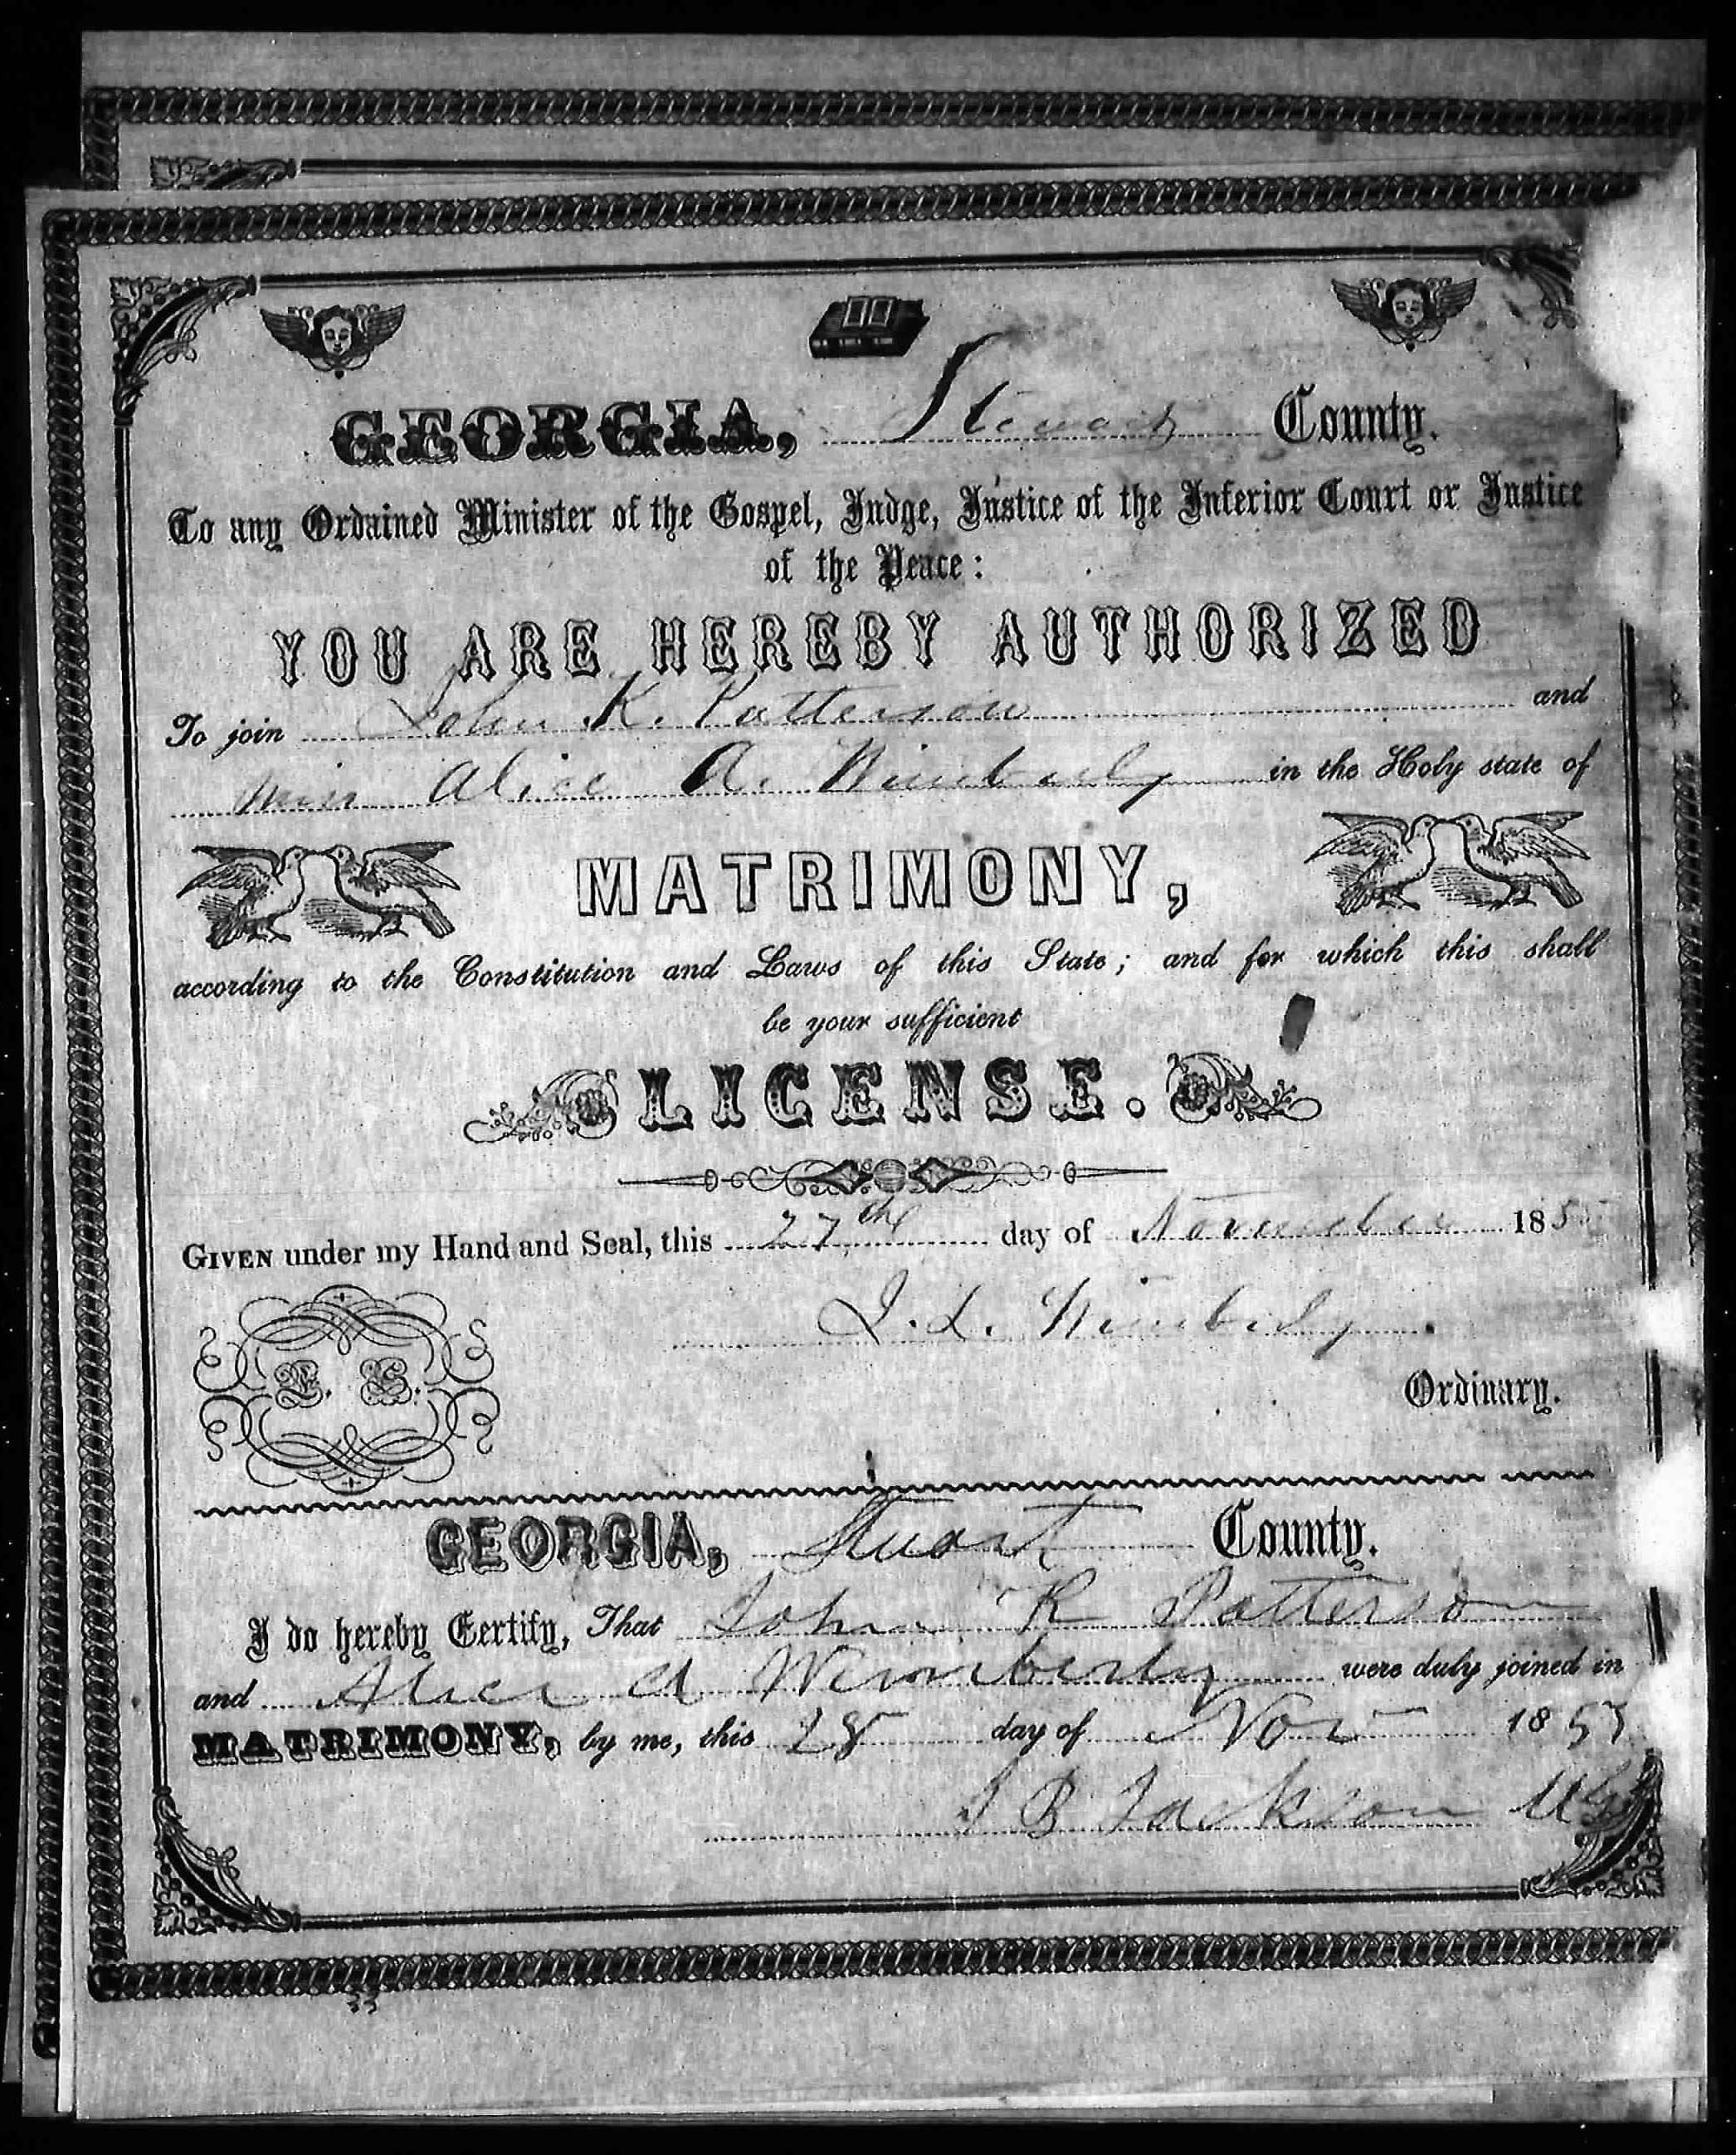 GEORGIA, Stewart County.
To any Ordained Minister of the Gospel, Judge, Justice of the Inferior Court or Justice
of the Peace:
YOU ARE HEREBY AUTHORIZED
To join John K. Patterson and
Miss Alice A. Wimberly in the Holy state of
MATRIMONY,
according to the Constitution and Laws of this State; and for which this shall
be your sufficient
LICENSE.
GIVEN under my Hand and Seal, this 27th day of November 185
J. L. Wimberly
L. S.
Ordinary.
GEORGIA, Stuart County.
I do hereby Certify, That John K Patterson
and Alice A Wimberly were duly joined in
MATRIMONY, by me, this 28 day of Nov 185
J B Jackson